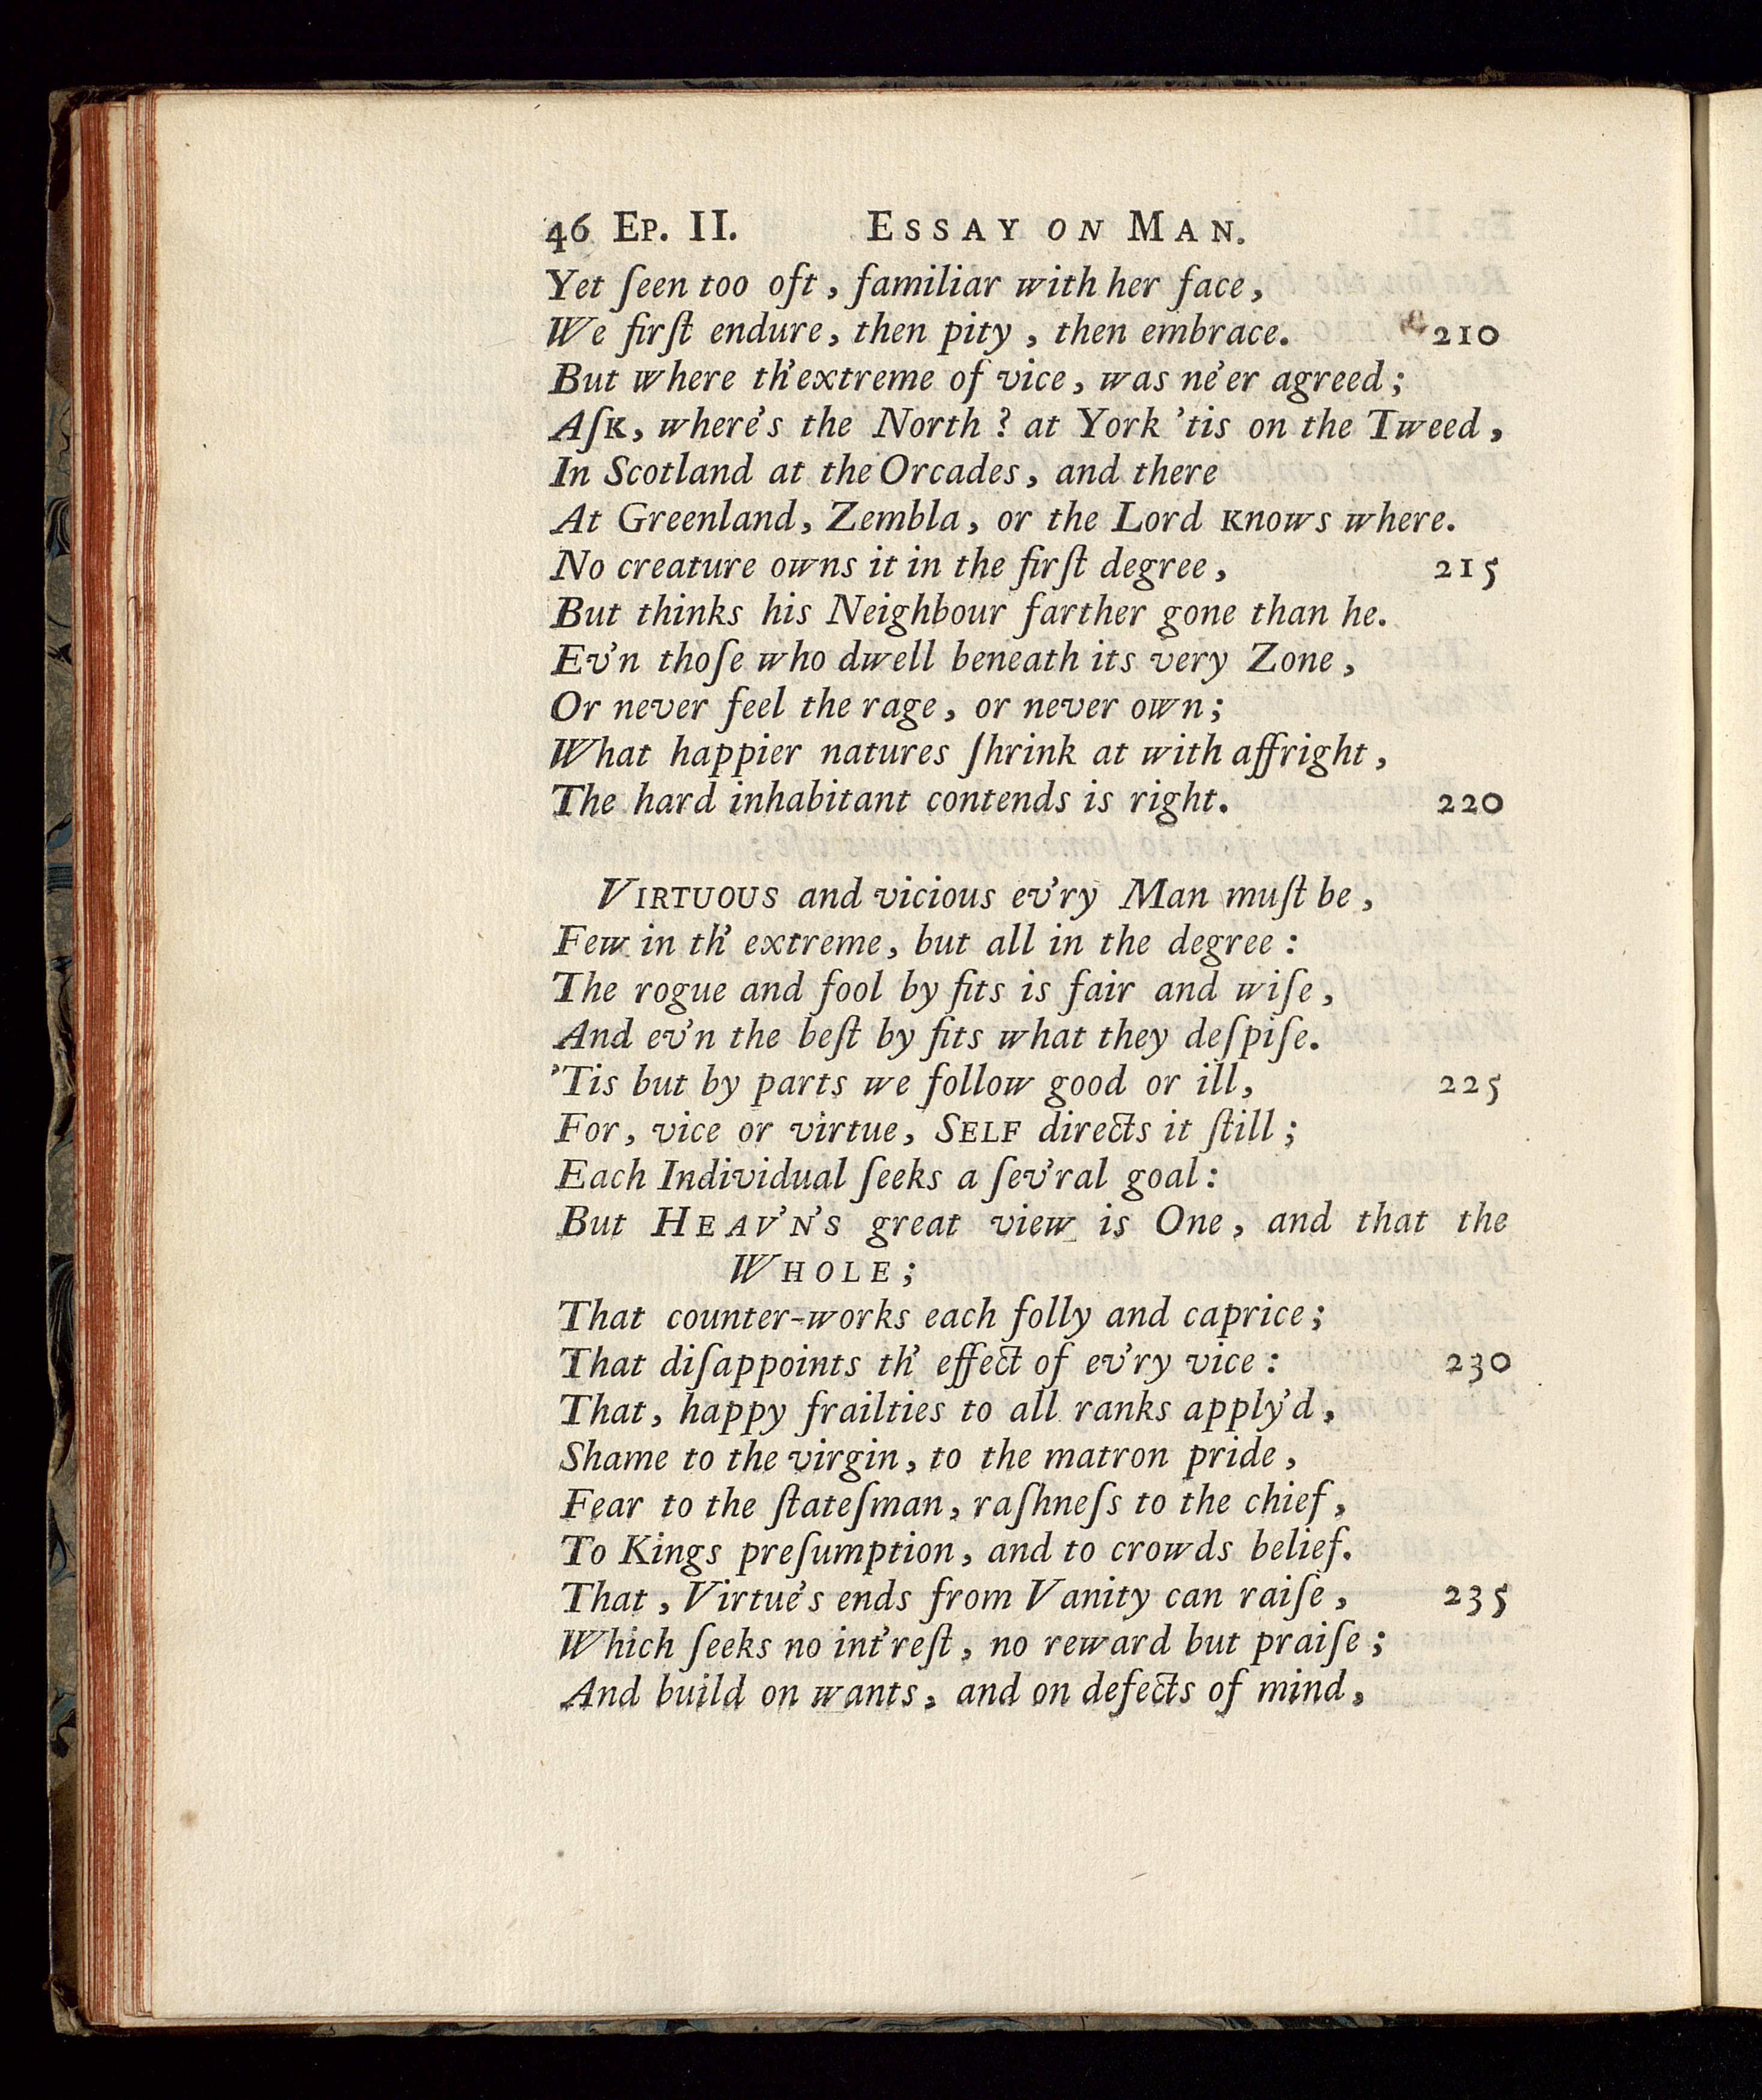 46 EP. II. ESSAY ON MAN.
Yet ſeen too oft, familiar with her face,
We firſt endure, then pity, then embrace. 210
But where th'extreme of vice, was ne'er agreed;
Aſk, where's the North? at York 'tis on the Tweed,
In Scotland at the Orcades, and there
At Greenland, Zembla, or the Lord knows where.
No creature owns it in the firſt degree, 215
But thinks his Neighbour farther gone than he.
Ev'n thoſe who dwell beneath its very Zone,
Or never feel the rage, or never own;
What happier natures ſhrink at with affright,
The hard inhabitant contends is right. 220
VIRTUOUS and vicious ev'ry Man muſt be,
Few in th' extreme, but all in the degree:
The rogue and fool by fits is fair and wiſe,
And ev'n the beſt by fits what they deſpiſe.
'Tis but by parts we follow good or ill, 225
For, vice or virtue, SELF directs it ſtill;
Each Individual ſeeks a ſev'ral goal:
But HEAV'N'S great view is One, and that the
WHOLE;
That counter-works each folly and caprice;
That diſappoints th' effect of ev'ry vice: 230
That, happy frailties to all ranks apply'd,
Shame to the virgin, to the matron pride,
Fear to the ſtateſman, raſhneſs to the chief,
To Kings preſumption, and to crowds belief.
That, Virtue's ends from Vanity can raiſe, 235
Which ſeeks no int'reſt, no reward but praiſe;
And build on wants, and on defects of mind,